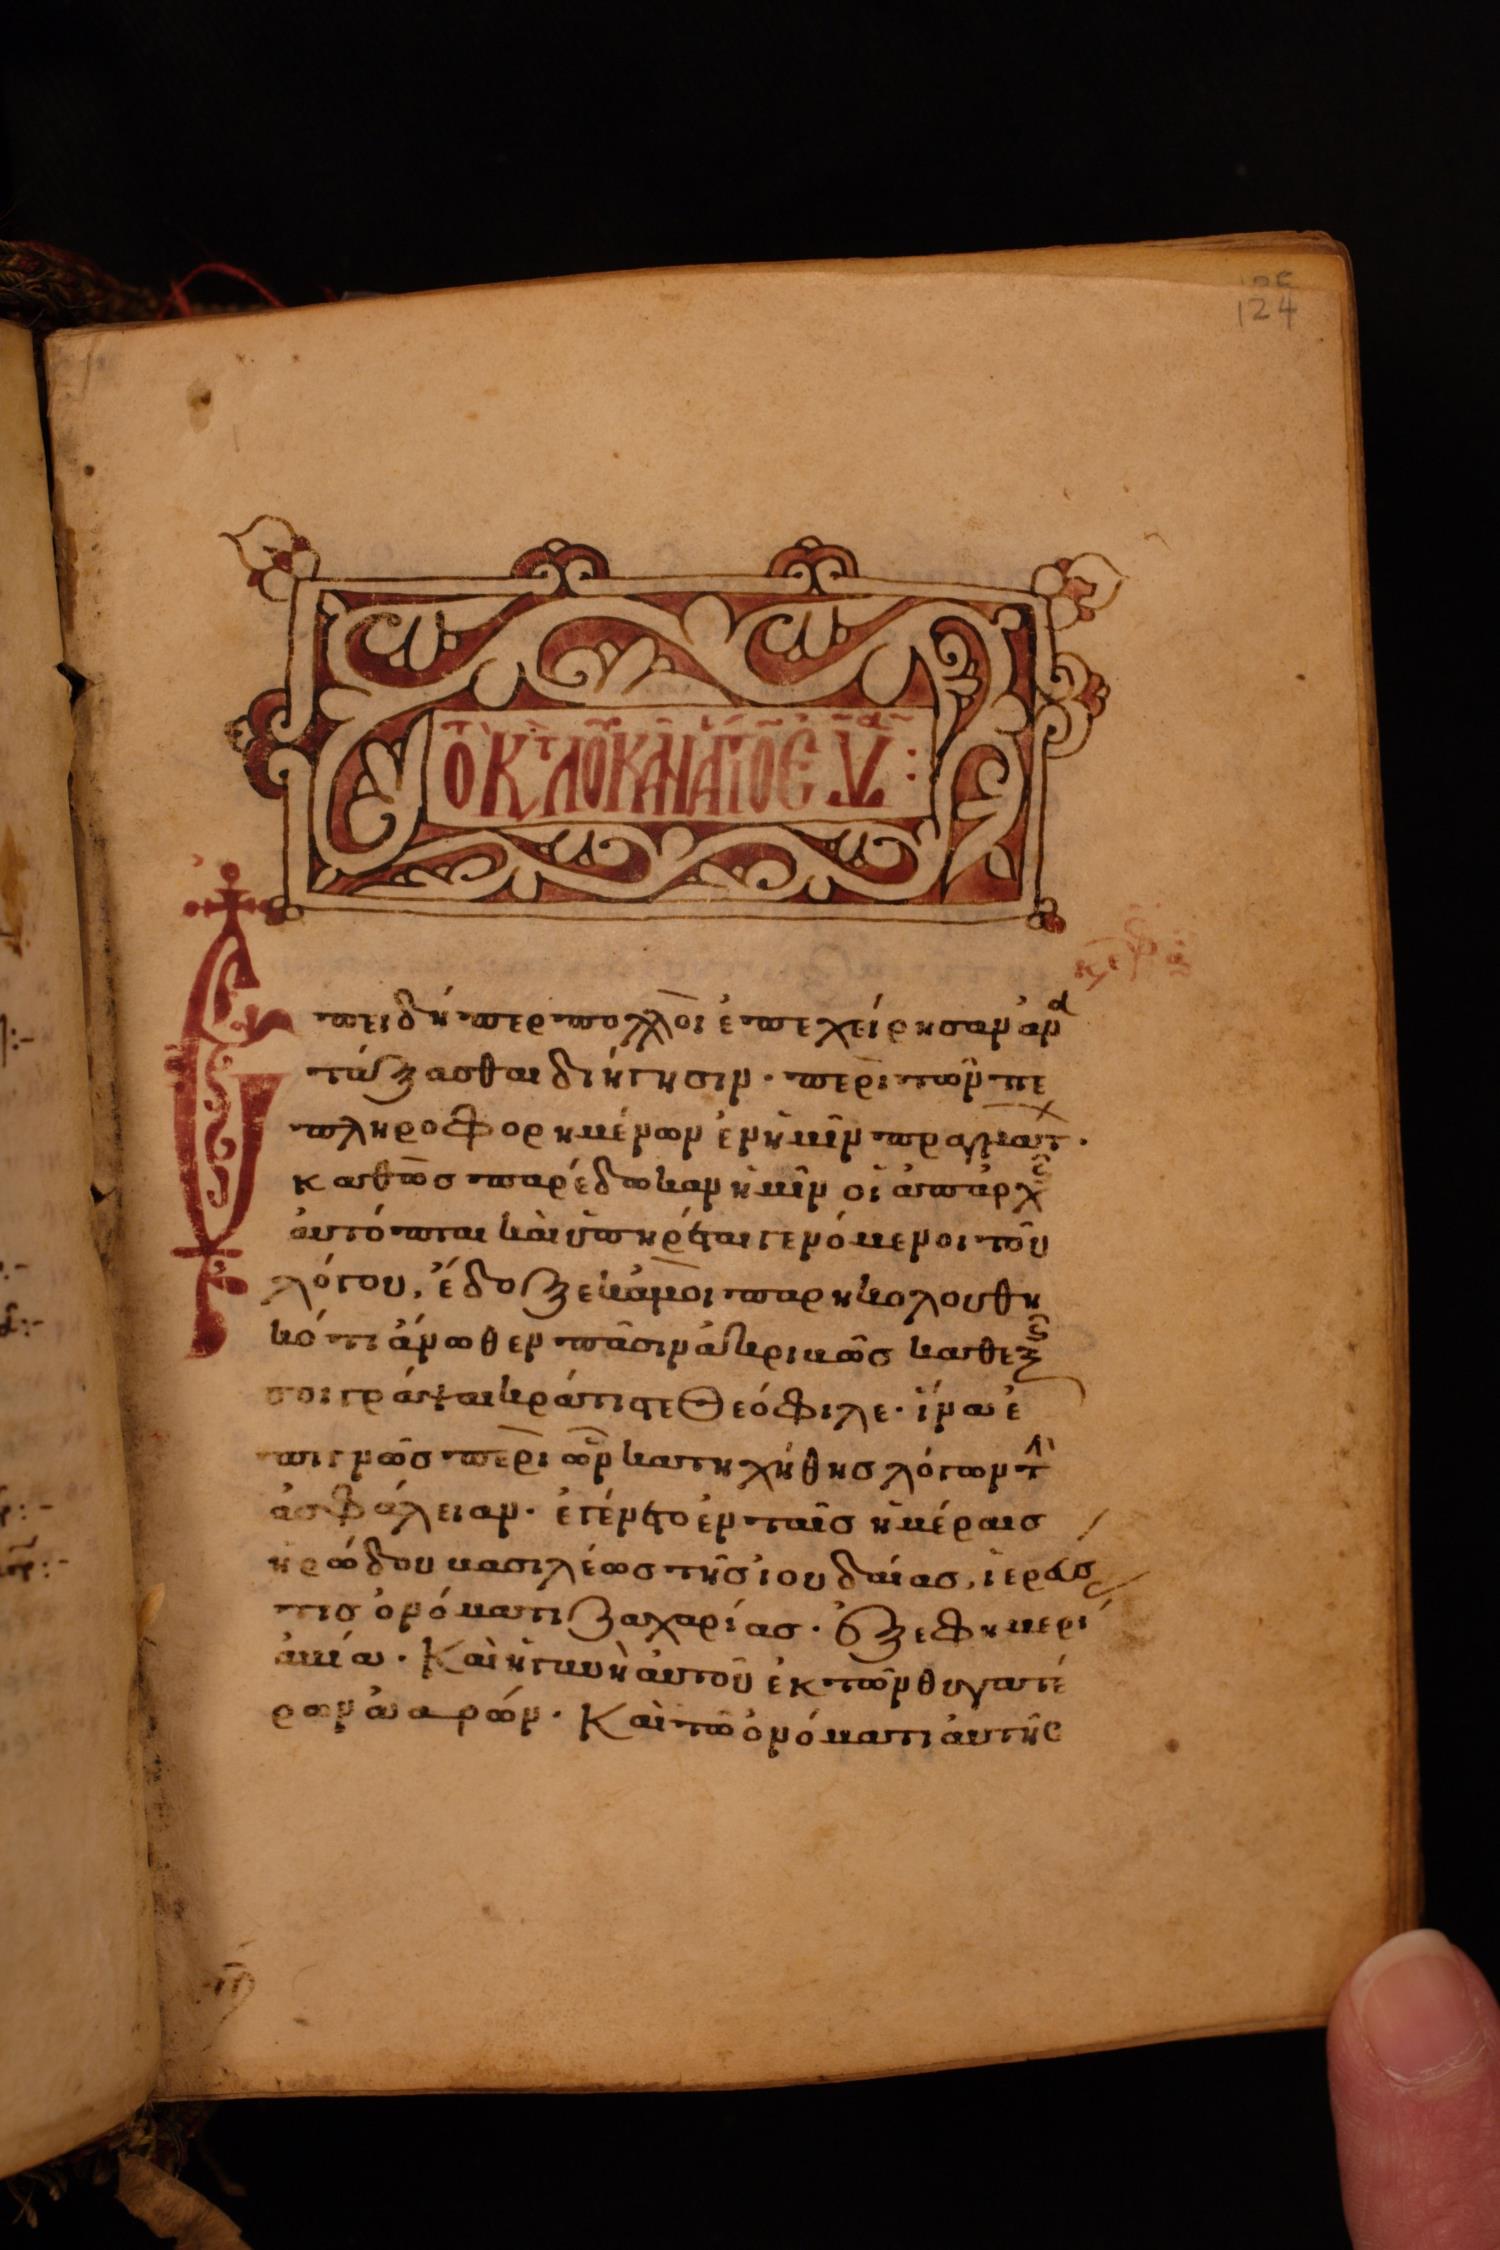 124
πειδήπερ πολλοὶ ἐπεχείρησαν ἀνα
τάξασθαι διήγησιν· περὶ τῶν πε
πληροφορημένων ἐν ἡμῖν πραγματ·
καθὼς παρέδωκαν ἡμῖν οἱ ἀπαρχῆς
ἀυτόπται καὶ ὑπηρέται γενόμενοι τοῦ
λόγου, ἔδοξε κἀμοὶ παρηκολουθη
κότι ἄνωθεν πᾶσιν ἀκριβῶς καθεξῆς
σοι γράψαι κράτιστε Θεόφιλε· ἵνα ἐ
πιγνῶς περὶ ὧν κατηχήθησ λόγων τὴν
ἀσφάλειαν· ἐγένετο ἐν ταῖς ἡμέραις
ἡρώδου βασιλέωσ τῆς ἰουδαίας, ἱερεύς
τισ ὀνόματι Ζαχαρίας· ἐξ ἐφημερί
ἀβιά· Καὶ ἡ γυνὴ ἀυτοῦ ἐκ τῶν θυγατέ
ρων ἀαρών· Καὶ τῶ ὀνόματι ἀυτῆς